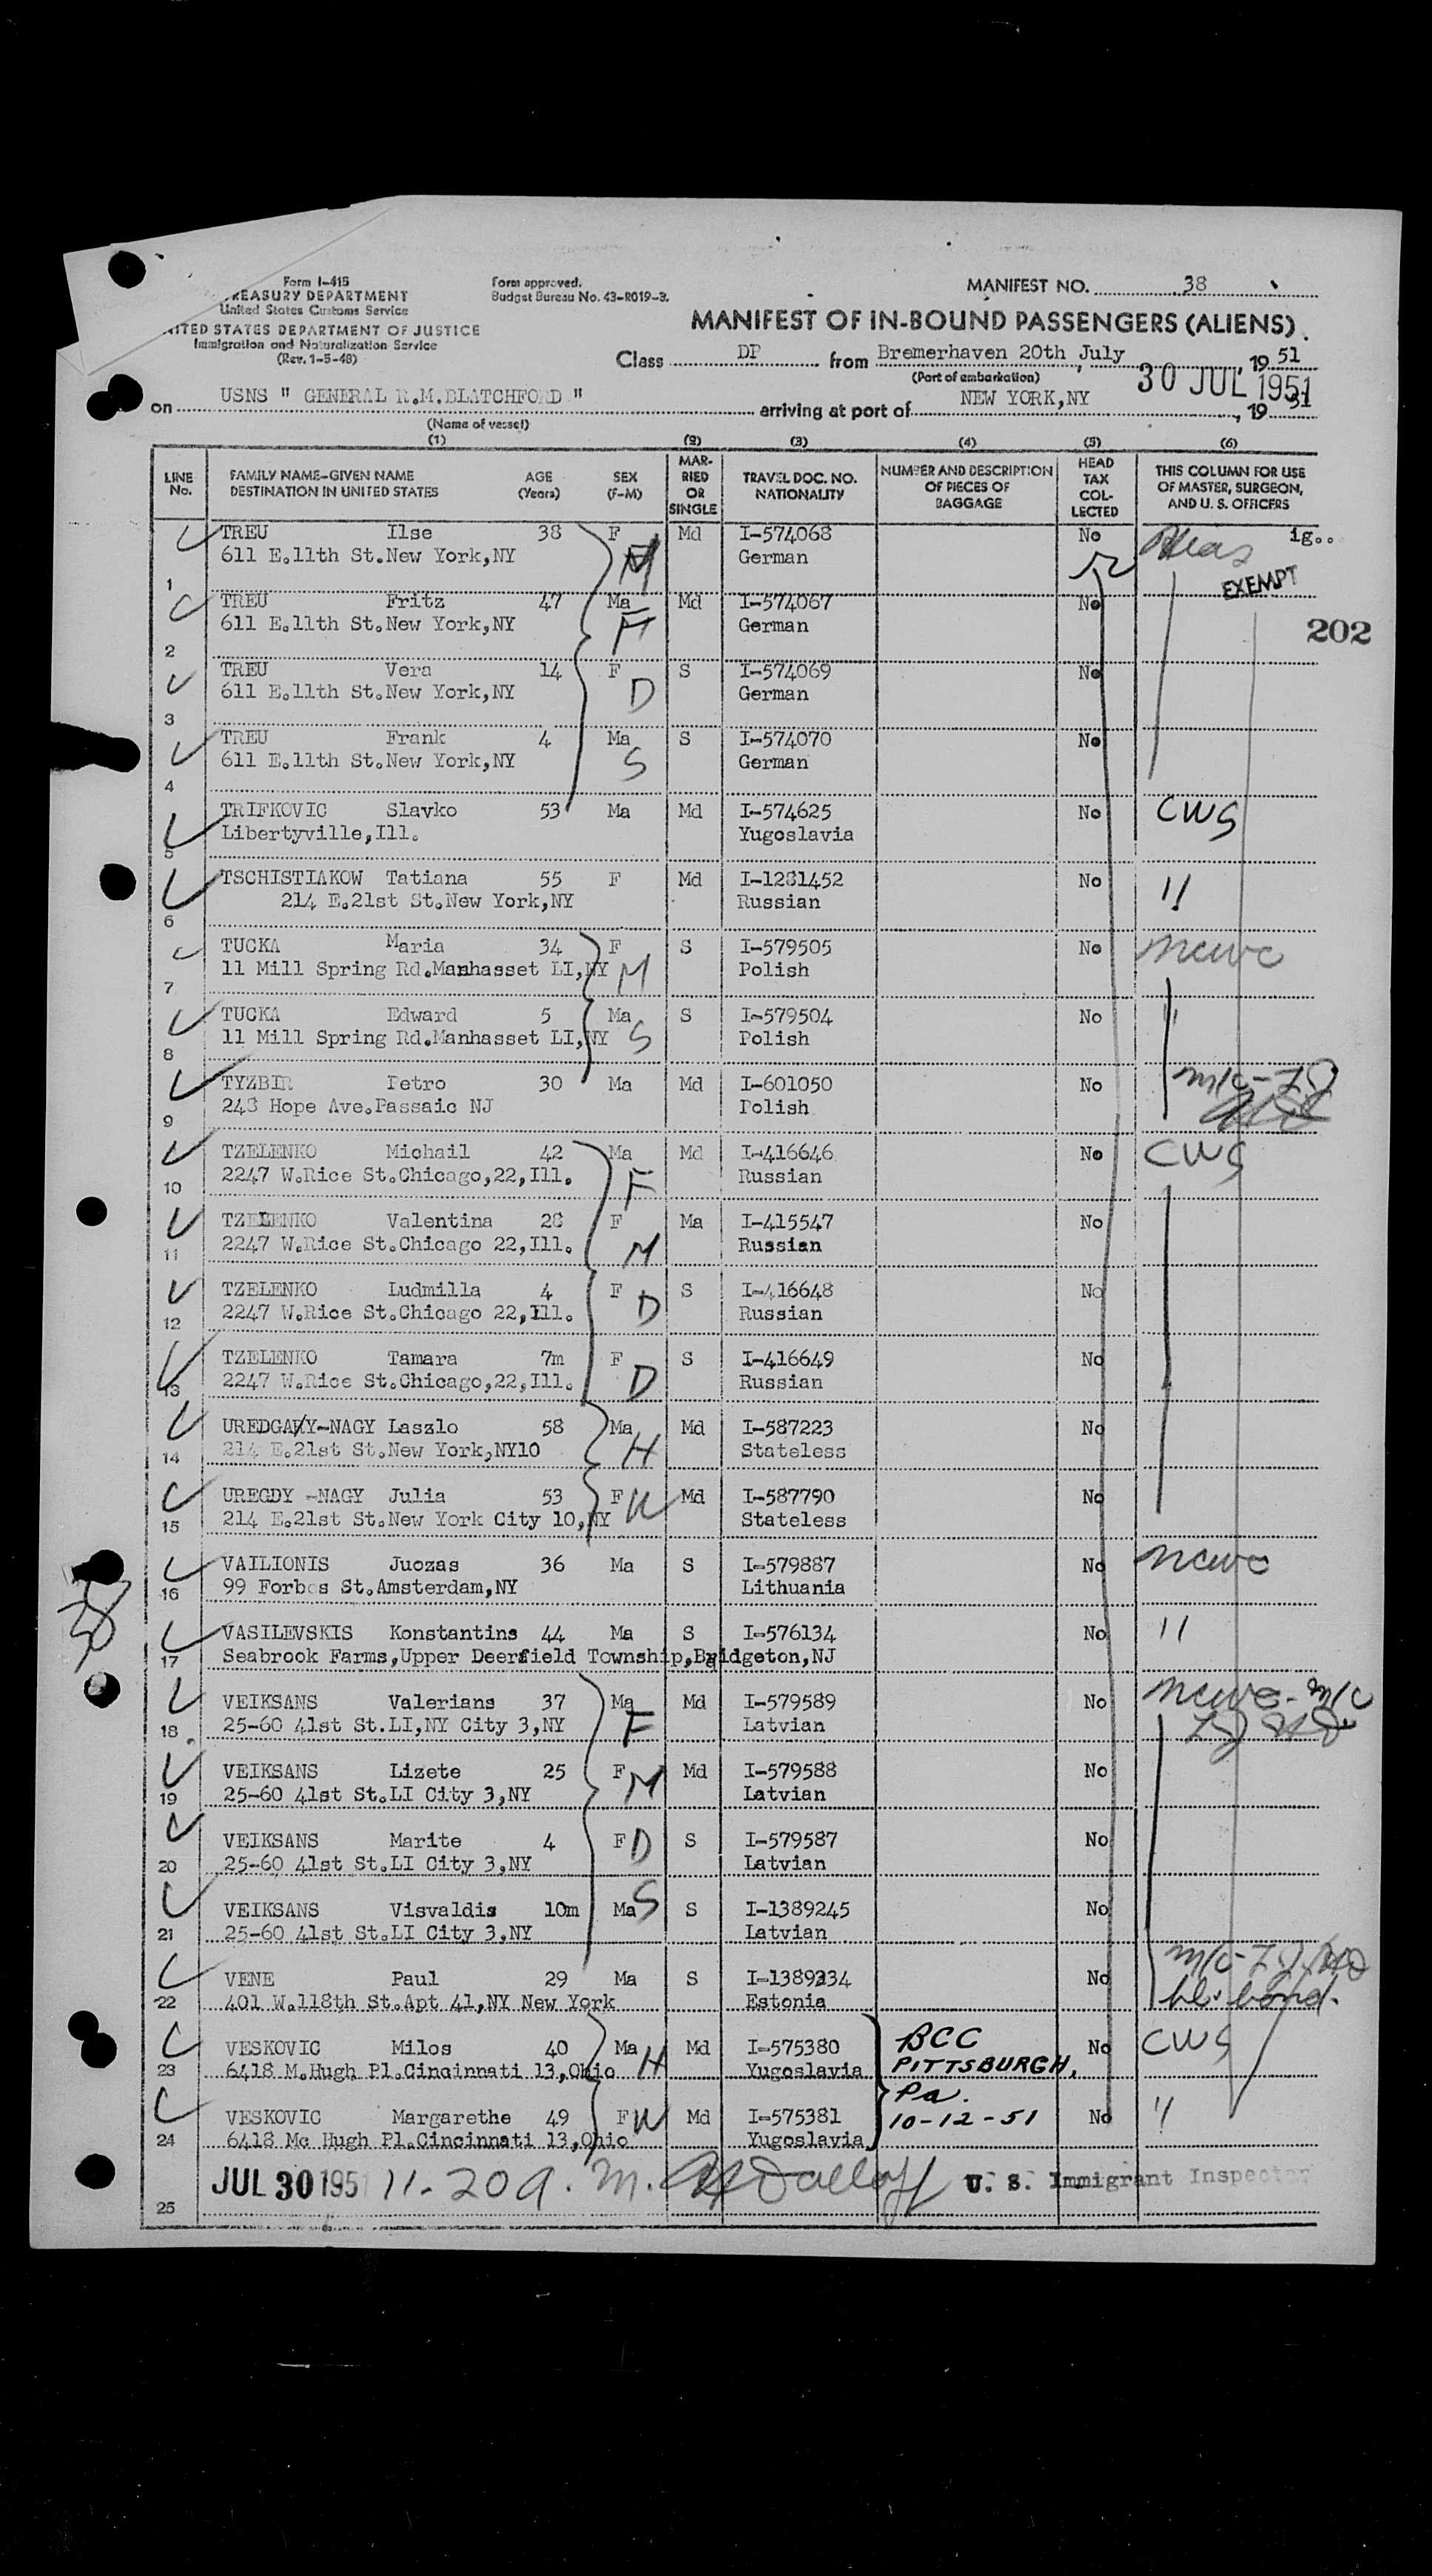 Form I-415
TREASURY DEPARTMENT
United States Customs Service
UNITED STATES DEPARTMENT OF JUSTICE
Immigration and Naturalization Service
(Rev. 1-5-48)
Form approved.
Budget Bureau No. 43-R019-3.
MANIFEST NO. 38
MANIFEST OF IN-BOUND PASSENGERS (ALIENS)
Class DP from Bremerhaven 20th July, 1951
(Port of embarkation)
30 JUL 1951
on USNS " GENERAL R.M.BLATCHFORD " arriving at port of NEW YORK,NY, 1951
(Name of vessel)
(1) (2) (3) (4) (5) (6)
LINE No. FAMILY NAME-GIVEN NAME DESTINATION IN UNITED STATES AGE (Years) SEX (F-M) MARRIED OR SINGLE TRAVEL DOC. NO. NATIONALITY NUMBER AND DESCRIPTION OF PIECES OF BAGGAGE HEAD TAX COLLECTED THIS COLUMN FOR USE OF MASTER, SURGEON, AND U. S. OFFICERS
TREU Ilse 38 F Md I-574068 No ig..
611 E.11th St.New York,NY M German
1 EXEMPT
TREU Fritz 47 Ma Md I-574067 No
611 E.11th St.New York,NY F German
202
2
TREU Vera 14 F S I-574069 No
611 E.11th St.New York,NY D German
3
TREU Frank 4 Ma S I-574070 No
611 E.11th St.New York,NY S German
4
TRIFKOVIC Slavko 53 Ma Md I-574625 No CWS
Libertyville,Ill. Yugoslavia
5
TSCHISTIAKOW Tatiana 55 F Md I-1281452 No "
214 E.21st St.New York,NY Russian
6
TUCKA Maria 34 F S I-579505 No ncwc
11 Mill Spring Rd.Manhasset LI,NY M Polish
7
TUCKA Edward 5 Ma S I-579504 No "
11 Mill Spring Rd.Manhasset LI,NY S Polish
8
TYZBIR Petro 30 Ma Md I-601050 No
248 Hope Ave.Passaic NJ Polish
9
TZELENKO Michail 42 Ma Md I-416646 No CWS
2247 W.Rice St.Chicago,22,Ill. F Russian
10
TZELENKO Valentina 28 F Ma I-415547 No
2247 W.Rice St.Chicago 22,Ill. M Russian
11
TZELENKO Ludmilla 4 F S I-416648 No
2247 W.Rice St.Chicago 22,Ill. D Russian
12
TZELENKO Tamara 7m F S I-416649 No
2247 W.Rice St.Chicago,22,Ill. D Russian
13
-NAGY Laszlo 58 Ma Md I-587223 No
214 E.21st St.New York,NY10 H Stateless
14
UREGDY -NAGY Julia 53 F W Md I-587790 No
214 E.21st St.New York City 10,NY Stateless
15
VAILIONIS Juozas 36 Ma S I-579887 No ncwc
99 Forbes St.Amsterdam,NY Lithuania
16
38
VASILEVSKIS Konstantins 44 Ma S I-576134 No "
Seabrook Farms,Upper Deerfield Township,Bridgeton,NJ
17
VEIKSANS Valerians 37 Ma Md I-579589 No ncwc - m/c
25-60 41st St.LI,NY City 3,NY F Latvian
18
VEIKSANS Lizete 25 F M Md I-579588 No
25-60 41st St.LI City 3,NY Latvian
19
VEIKSANS Marite 4 F D S I-579587 No
25-60 41st St.LI City 3,NY Latvian
20
VEIKSANS Visvaldis 10m Ma S S I-1389245 No
25-60 41st St.LI City 3,NY Latvian
21
VENE Paul 29 Ma S I-1389334 No
401 W.118th St.Apt 41,NY New York Estonia bl. bond.
22
VESKOVIC Milos 40 Ma H Md I-575380 BCC No CWS
6418 M.Hugh Pl.Cincinnati 13,Ohio Yugoslavia PITTSBURGH,
23 Pa.
VESKOVIC Margarethe 49 F W Md I-575381 10-12-51 No "
6418 Mc Hugh Pl.Cincinnati 13,Ohio Yugoslavia
24
JUL 30 1951 11-20 a.m. U. S. Immigrant Inspector
25